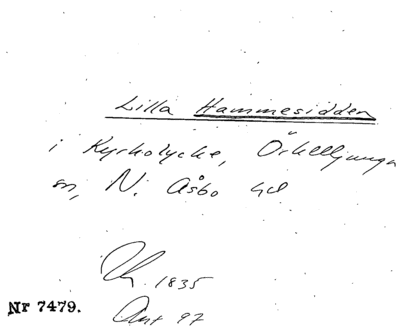 Lilla Hammesidden
i Kyrkolycke, Örkelljunga
sn, N. Åsbo hd
1835
Nr 7479.
Ant 97